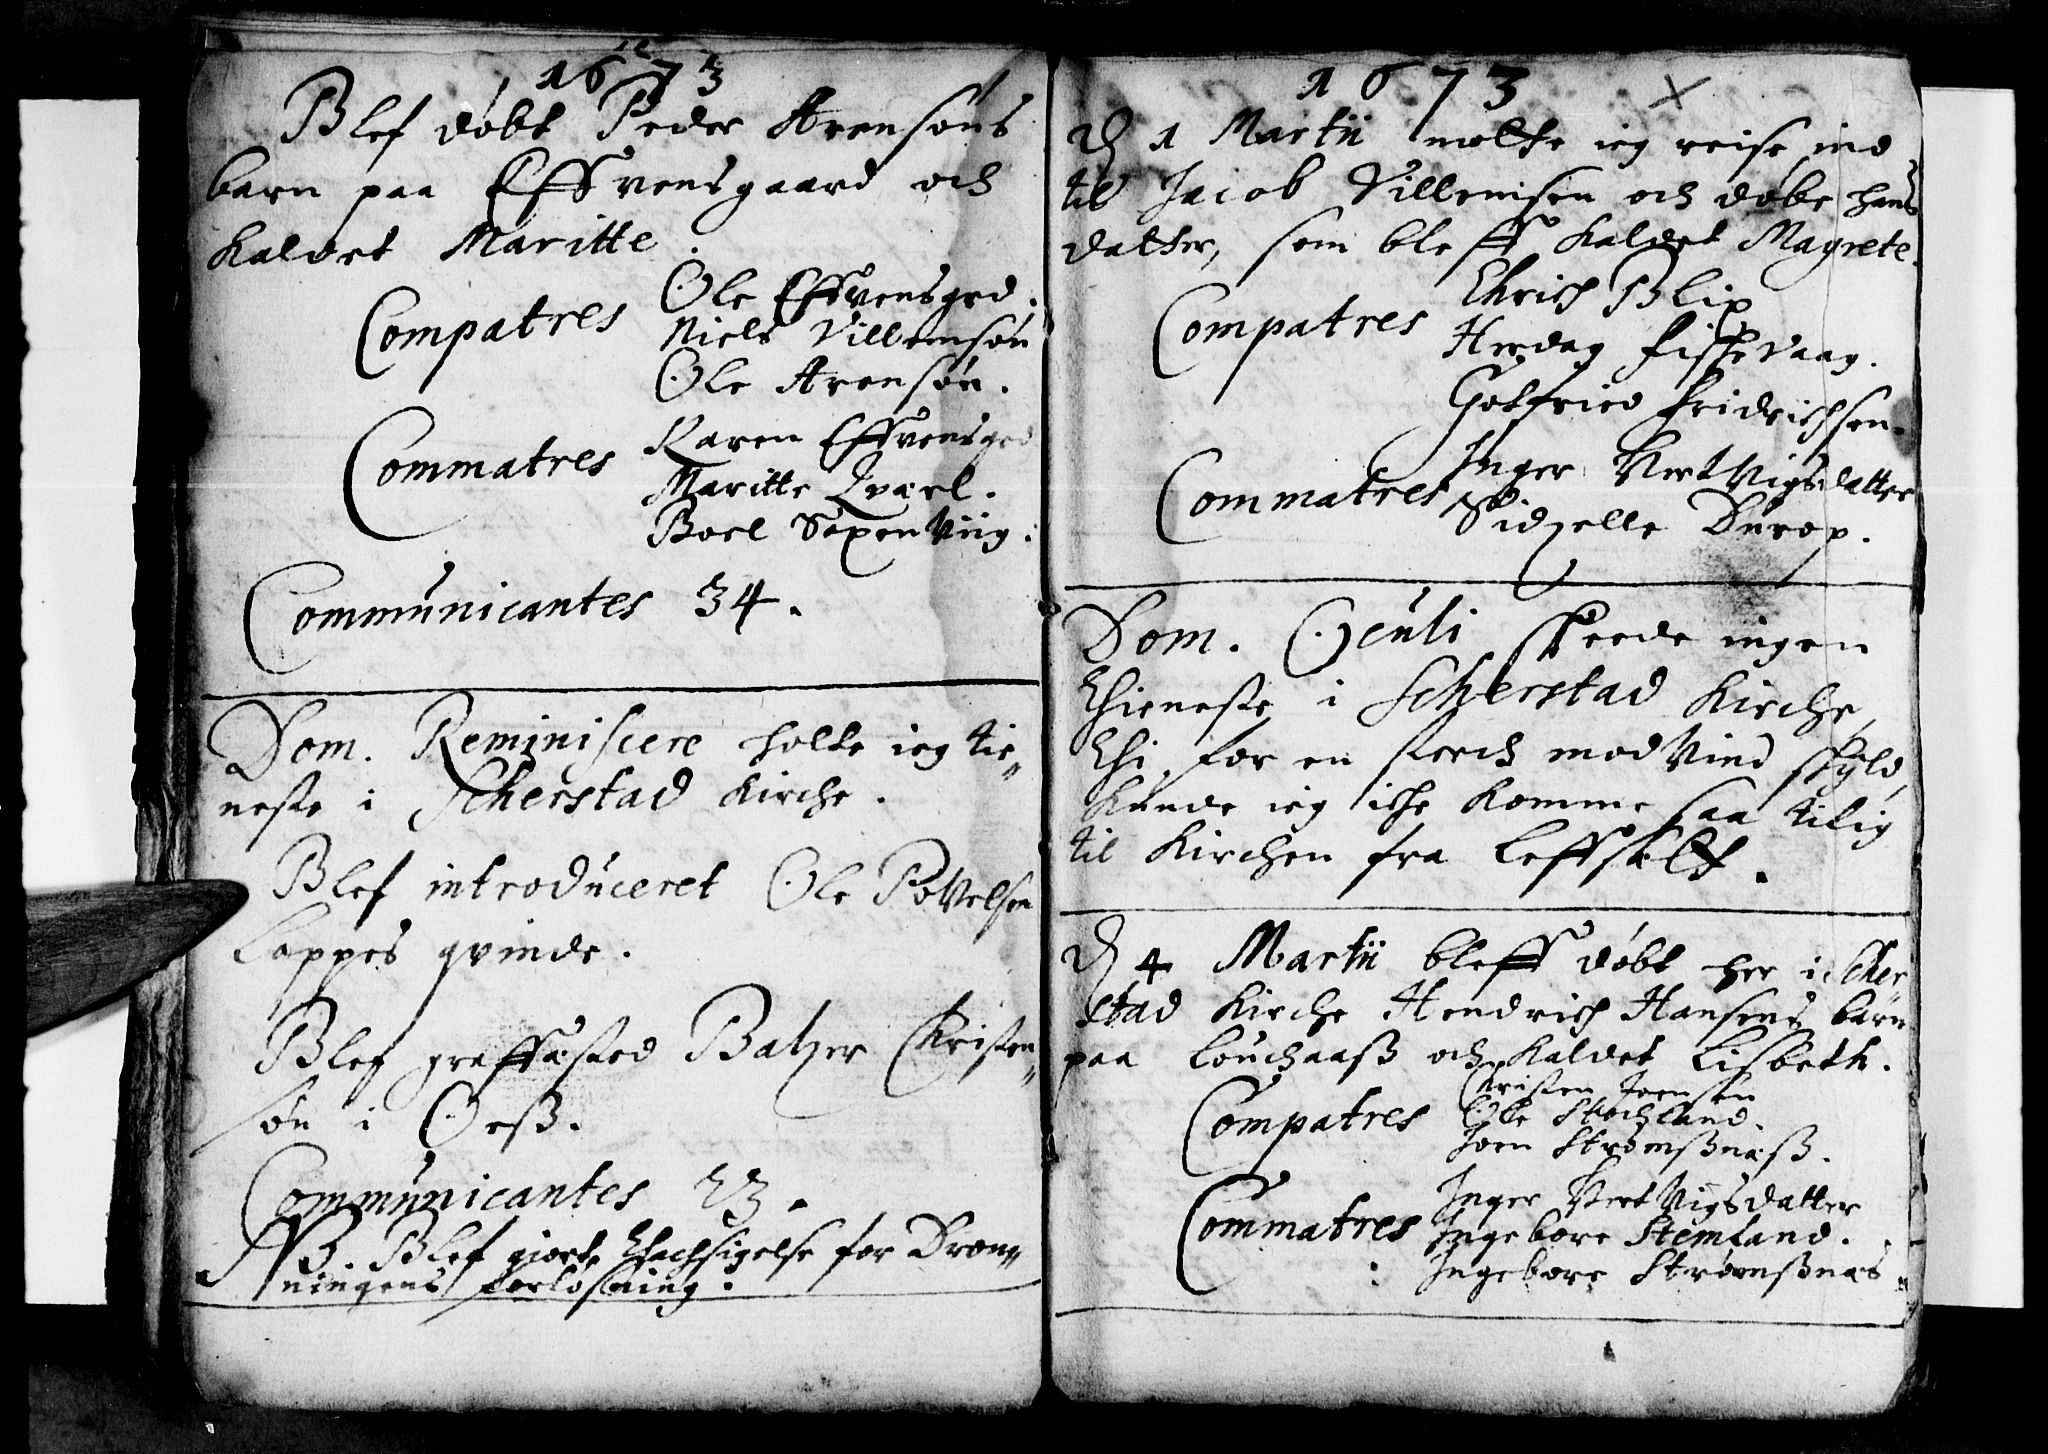 1673
Blef døbt Peder Arensøns
barn paa Effvensgaard och
kaldet Maritte.
Compatres
Ole Effvensgrd.
Niels Villemsøn
Ole Arensøn.
Commatres
Karen Effvensgrd
Maritte Qværl.
Boel SoxenViig:
Communicantes 34.
Dom. Reminiscere holte ieg tie„
neste i Scherstad Kirche.
Blef introduceret Ole PoVelsen
Lappes qvinde.
Blef graffæsted Batzer Christen„
søn i Oeß.
Communicantes 23.
NB. Blef giort Thachsigelse for Dron„
ningens forløsning:
1673
D 1 Martii motte ieg reise ind
til Jacob Villemsen och døbe hans
datter, som bleff kaldet Magrete.
Compatres
Ehrich Blix
Herdag Fischevaag.
Gotfried Fridrichsen.
Commatres
Inger HertVigsdatter
Sidzelle Durop.
Dom. Oculi skeede ingen
Thieneste i Scherstad Kirche,
Thi for en sterch modVind skyld,
kunde ieg iche komme saa tilig
til Kirchen fra Leffselt.
D 4 Martii bleff døbt her i Scher„
stad Kirche Hendrich Hansens barn
paa Louchaaß och kaldet Lisbeth.
Compatres
Christen Joensen
Ole Stochland.
Joen Strømßnæß.
Commatres
Inger HertVigsdatter
Ingebore Stemland.
: Ingebore Strømßnæs